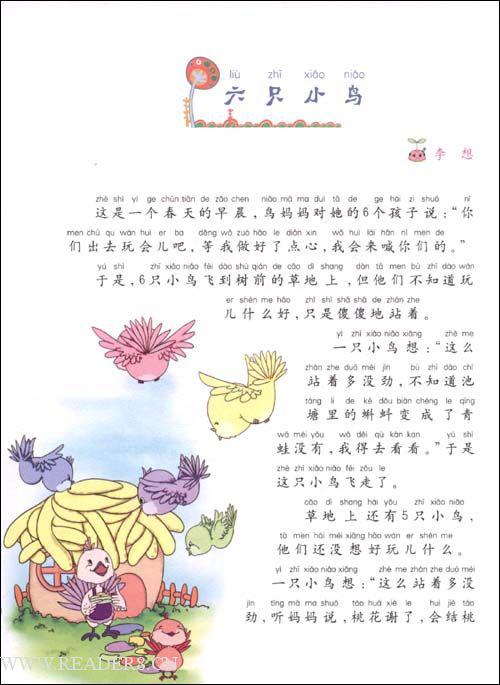 liù zhī xiǎo niǎo
六只小鸟
李想
zhè shì yí ge chūn tiān de zǎo chen niǎo mā ma duì tā de ge hái zi shuō nǐ
这是一个春天的早晨，鸟妈妈对她的6个孩子说：“你
men chū qu wán huìr ba děng wǒ zuò hǎo le diǎn xin wǒ huì lái hǎn nǐ men de
们出去玩会儿吧，等我做好了点心，我会来喊你们的。”
yú shì zhī xiǎo niǎo fēi dào shù qián de cǎo dì shang dàn tā men bù zhī dào wán
于是，6只小鸟飞到树前的草地上，但他们不知道玩
er shén me hǎo zhǐ shì shǎ shǎ de zhàn zhe
儿什么好，只是傻傻地站着。
yì zhī xiǎo niǎo xiǎng zhè me
一只小鸟想：“这么
zhàn zhe duō méi jìn bù zhī dào chí
站着多没劲，不知道池
táng li de kē dǒu biàn chéng le qīng
塘里的蝌蚪变成了青
wā méi yǒu wǒ děi qù kàn kan yú shì
蛙没有，我得去看看。”于是
zhè zhī xiǎo niǎo fēi zǒu le
这只小鸟飞走了。
cǎo dì shang hái yǒu zhī xiǎo niǎo
草地上还有5只小鸟，
tā men hái méi xiǎng hǎo wán er shén me
他们还没想好玩儿什么。
yì zhī xiǎo niǎo xiǎng zhè me zhàn zhe duō méi
一只小鸟想：“这么站着多没
jìn tīng mā ma shuō táo huā xiè le huì jiē táo
劲，听妈妈说，桃花谢了，会结桃
WWW.READERS.CN